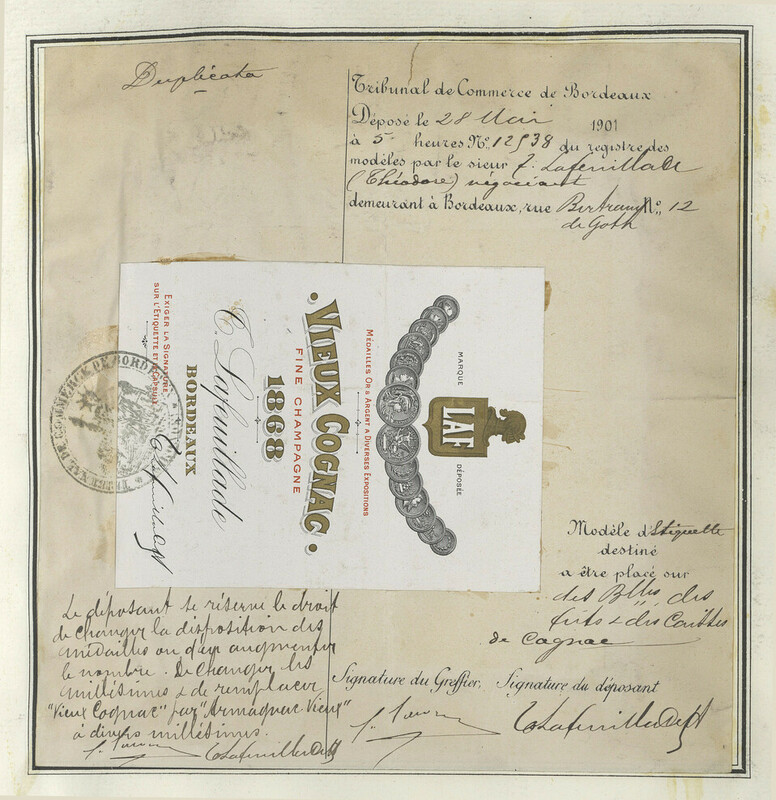 Duplicata
Tribunal de Commerce de Bordeaux
Déposé le 28 Mai 1901
à 5 heures No. 12538 du registre des
modèles par le sieur T. Lafeuillade
(Théodore) négociant
demeurant à Bordeaux, rue Bertrand No. 12
de Goth
MARQUE
LAF
DÉPOSÉE
MÉDAILLES OR & ARGENT A DIVERSES EXPOSITIONS
VIEUX COGNAC
FINE CHAMPAGNE
1868
T. Lafeuillade
BORDEAUX
EXIGER LA SIGNATURE
SUR L'ETIQUETTE ET CAPSULE
TRIBUNAL DE COMMERCE DE BORDEAUX
Modèle d'Etiquette
destiné
a être placé sur
des Blles, des
fûts & des Caisses
de Cognac
Le déposant se réserve le droit
de changer la disposition des
médailles ou d'en augmenter
le nombre. De changer les
millésimes & de remplacer
"Vieux Cognac" par "Armagnac Vieux"
à divers millésimes.
Signature du Greffier, Signature du déposant